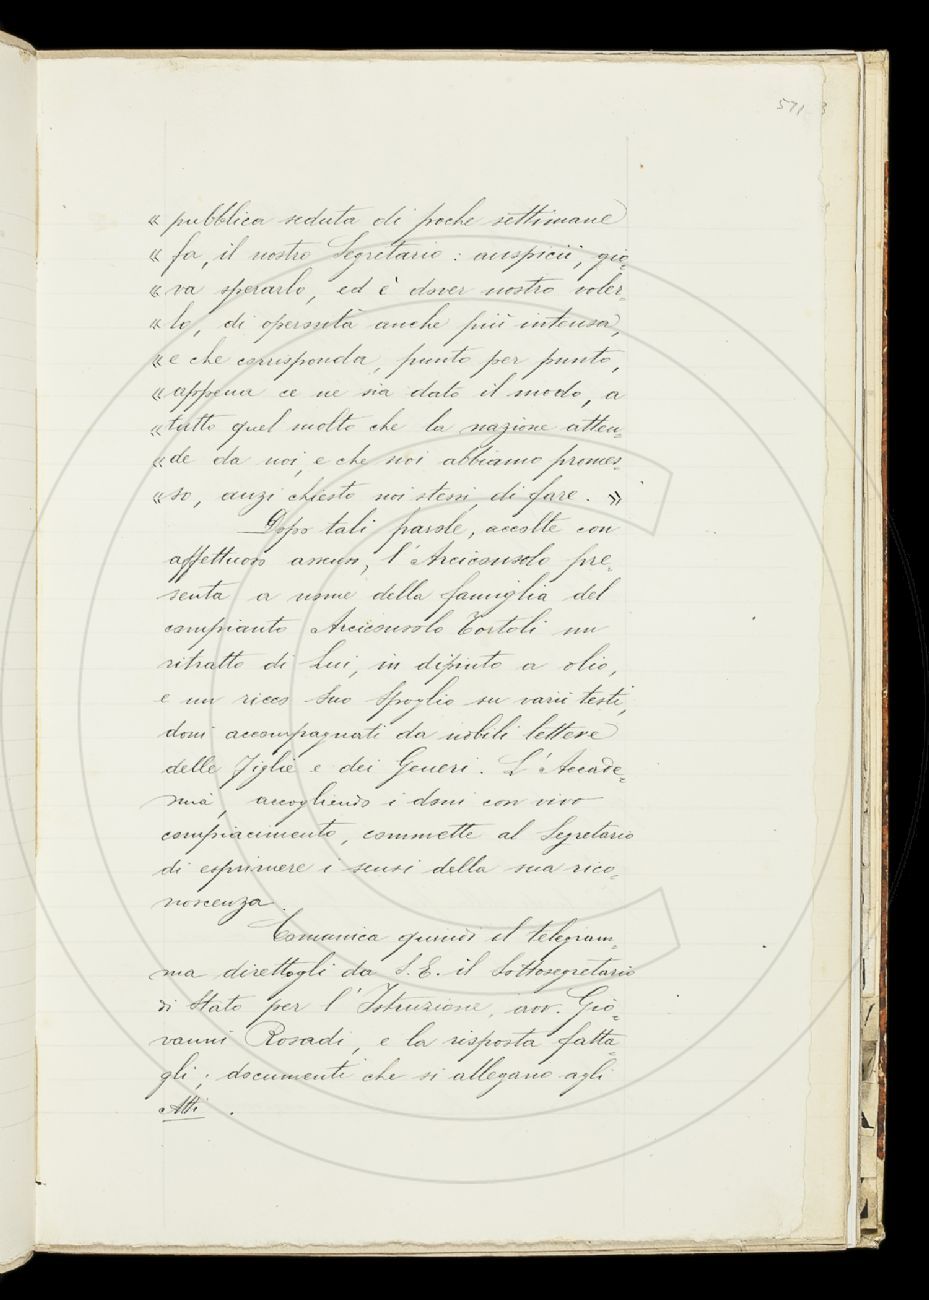 571
« pubblica seduta di poche settimane
« fa, il nostro Segretario: auspicii, gio-
« va sperarlo, ed è dover nostro voler-
« lo, di operosità anche più intensa,
« e che corrisponda, punto per punto,
« appena ce ne sia dato il modo, a
« tutto quel molto che la nazione atten-
« de da noi, e che noi abbiamo promes-
« so, anzi chiesto noi stessi, di fare. »
Dopo tali parole, accolte con
affettuoso assenso, l'Arciconsolo pre-
senta a nome della famiglia del
compianto Arciconsolo Tortoli un
ritratto di Lui, in dipinto a olio,
e un ricco Suo Spoglio su varii testi,
doni accompagnati da nobili lettere
delle Figlie e dei Generi. L'Accade-
mia, accogliendo i doni con vivo
compiacimento, commette al Segretario
di esprimere i sensi della sua rico-
noscenza.
Comunica quindi il telegram-
ma direttogli da S. E. il Sottosegretario
di Stato per l'Istruzione, avv. Gio-
vanni Rosadi, e la risposta fatta-
gli; documenti che si allegano agli
Atti.